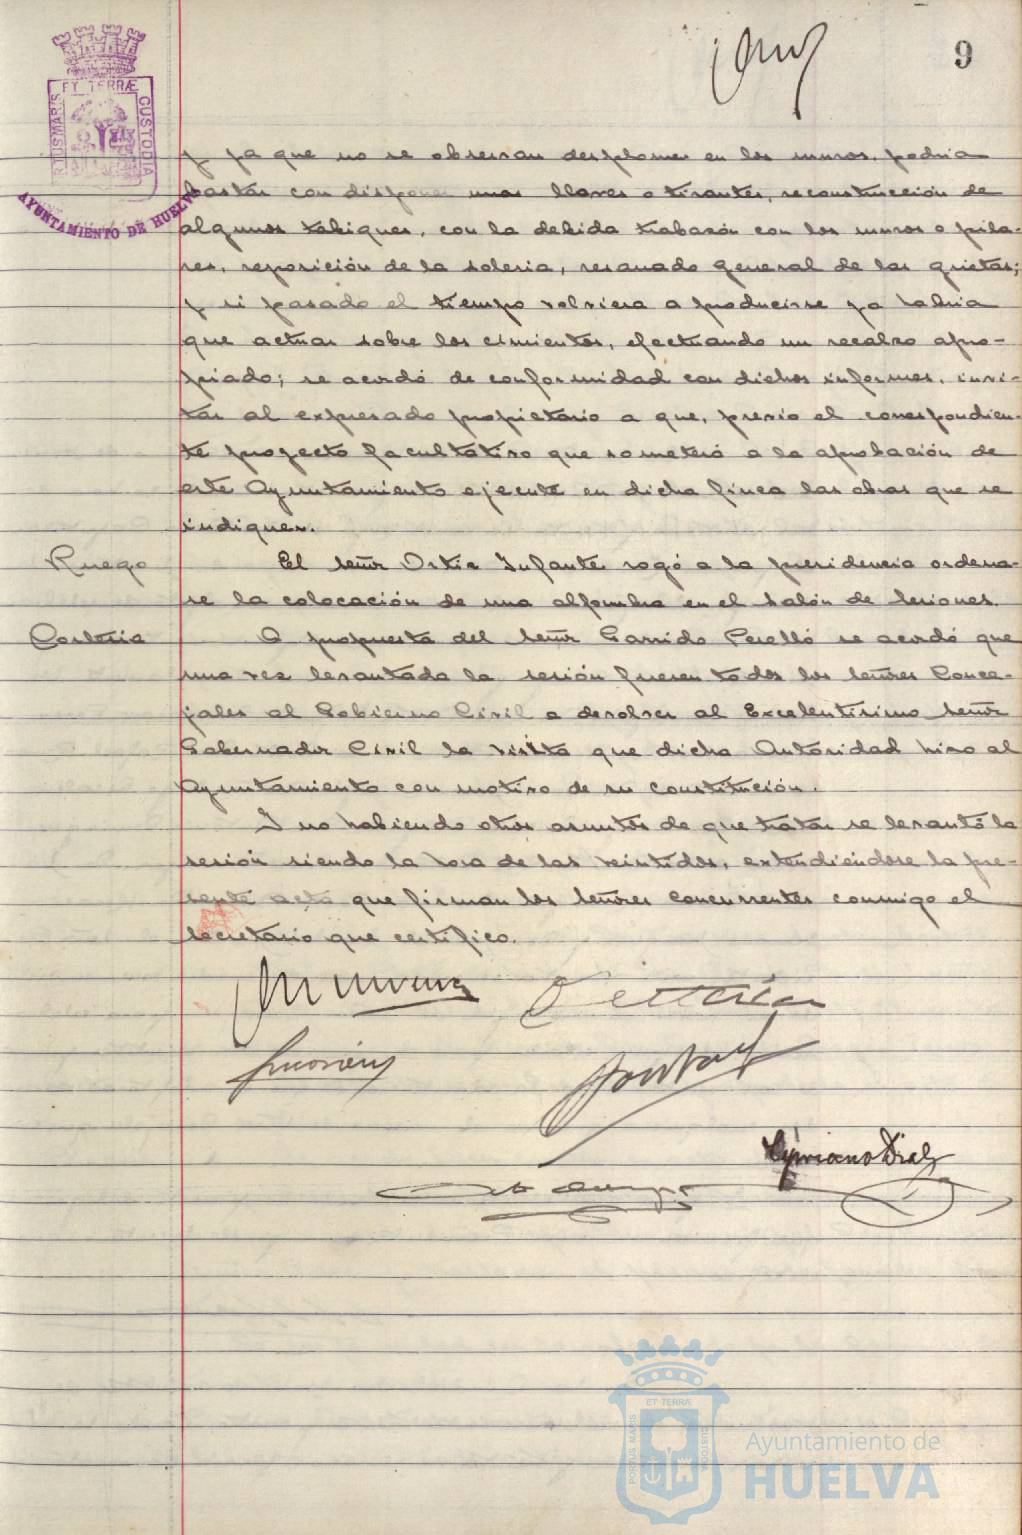 9
PORTUS MARIS ET TERRÆ CUSTODIA
AYUNTAMIENTO DE HUELVA
y ya que no se observan desplomes en los muros, podria
bastar con disponer unas llaves o tirantes, reconstrucción de
algunos tabiques, con la debida trabazón con los muros o pila-
res, reposición de la soleria, resanado general de las grietas;
y si pasado el tiempo volviera a producirse ya habria
que actuar sobre los cimientos, efectuando un recalzo apro-
piado; se acordó de conformidad con dichos informes, invi-
tar al expresado propietario a que, previo el correspondien-
te proyecto facultativo que someterá a la aprobación de
este Ayuntamiento ejecute en dicha finca las obras que se
indiquen.
Ruego
El señor Ortiz Infante rogó a la presidencia ordena-
se la colocación de una alfombra en el salón de sesiones.
Cortesia
A propuesta del señor Garrido Perelló se acordó que
una vez levantada la sesión fuesen todos los señores Conce-
jales al Gobierno Civil a devolver al Excelentisimo señor
Gobernador Civil la visita que dicha Autoridad hizo al
Ayuntamiento con motivo de su constitución.
Y no habiendo otros asuntos de que tratar se levantó la
sesión siendo la hora de las veintidos, extendiéndose la pre-
sente acta que firman los señores concurrentes conmigo el
secretario que certifico.
Cipriano Diaz
PORTUS MARIS ET TERRÆ CUSTODIA
Ayuntamiento de
HUELVA